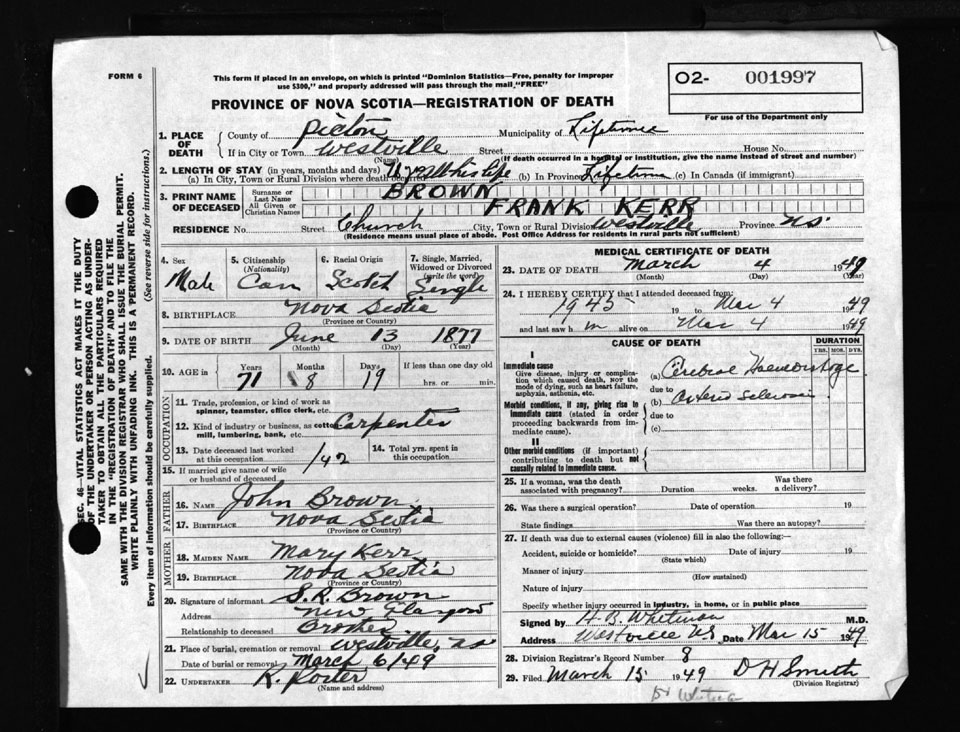 FORM 6
This form if placed in an envelope, on which is printed "Dominion Statistics—Free, penalty for improper
use $300," and properly addressed will pass through the mail, "FREE"
O2- 001997
For use of the Department only
PROVINCE OF NOVA SCOTIA—REGISTRATION OF DEATH
1. PLACE OF DEATH
County of Pictou Municipality of Lifetime
If in City or Town Westville Street House No.
(Name) (If death occurred in a hospital or institution, give the name instead of street and number)
2. LENGTH OF STAY (in years, months and days)
(a) In City, Town or Rural Division where death occurred (b) In Province Lifetime (c) In Canada (if immigrant)
3. PRINT NAME OF DECEASED
Surname or Last Name BROWN
All Given or Christian Names FRANK KERR
RESIDENCE No. Street Church City, Town or Rural Division Westville Province NS
(Residence means usual place of abode. Post Office Address for residents in rural parts not sufficient)
4. Sex Male
5. Citizenship (Nationality) Can
6. Racial Origin Scotch
7. Single, Married, Widowed or Divorced (write the word) Single
8. BIRTHPLACE Nova Scotia
(Province or Country)
9. DATE OF BIRTH June 13 1877
(Month) (Day) (Year)
10. AGE in Years 71 Months 8 Days 19 If less than one day old hrs. or min.
OCCUPATION
11. Trade, profession, or kind of work as spinner, teamster, office clerk, etc.
12. Kind of industry or business, as cotton mill, lumbering, bank, etc. Carpenter
13. Date deceased last worked at this occupation /42
14. Total yrs. spent in this occupation
15. If married give name of wife or husband of deceased
FATHER
16. Name John Brown
17. Birthplace Nova Scotia
(Province or Country)
MOTHER
18. Maiden Name Mary Kerr
19. Birthplace Nova Scotia
(Province or Country)
20. Signature of informant S. R. Brown
Address New Glasgow
Relationship to deceased Brother
21. Place of burial, cremation or removal Westville, NS
Date of burial or removal March 6/49
22. Undertaker K. Porter
(Name and address)
MEDICAL CERTIFICATE OF DEATH
23. DATE OF DEATH March 4 1949
(Month) (Day) (Year)
24. I HEREBY CERTIFY that I attended deceased from:
1945 19 to Mar 4 1949
and last saw him alive on Mar 4 1949
CAUSE OF DEATH
DURATION
YRS. MOS. DYS.
I
Immediate cause
Give disease, injury or complication which caused death, NOT the mode of dying, such as heart failure, asphyxia, asthenia, etc.
(a) Cerebral Haemorrhage
due to
Morbid conditions, if any, giving rise to immediate cause (stated in order proceeding backwards from immediate cause).
(b) Arterio sclerosis
due to
(c)
II
Other morbid conditions (if important) contributing to death but not causally related to immediate cause.
25. If a woman, was the death associated with pregnancy? Duration weeks. Was there a delivery?
26. Was there a surgical operation? Date of operation 19
State findings Was there an autopsy?
27. If death was due to external causes (violence) fill in also the following:—
Accident, suicide or homicide? Date of injury 19
(State which)
Manner of injury
(How sustained)
Nature of injury
Specify whether injury occurred in industry, in home, or in public place
Signed by H. B. Whitman M.D.
Address Westville NS Date Mar 15 1949
28. Division Registrar's Record Number 8
29. Filed March 15 1949 D H Smith
(Division Registrar)
SEC. 46—VITAL STATISTICS ACT MAKES IT THE DUTY
OF THE UNDERTAKER OR PERSON ACTING AS UNDERTAKER
TO OBTAIN ALL THE PARTICULARS REQUIRED
IN THE "REGISTRATION OF DEATH" AND TO FILE THE
SAME WITH THE DIVISION REGISTRAR WHO SHALL ISSUE THE BURIAL PERMIT.
WRITE PLAINLY WITH UNFADING INK. THIS IS A PERMANENT RECORD.
Every item of information should be carefully supplied. (See reverse side for instructions.)